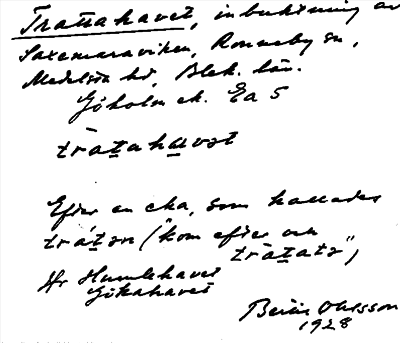 Trättahavet, inbuktning av
Saxemaraviken, Ronneby sn,
Medelsta hd, Blek. län.
Göholm ek. Ea 5
trätahavət
Efter en eka, som kallades
trätən ("kom efter en
trätatə",
Jfr Humlehavet
Gökahavet
Bertil Ohlsson
1928